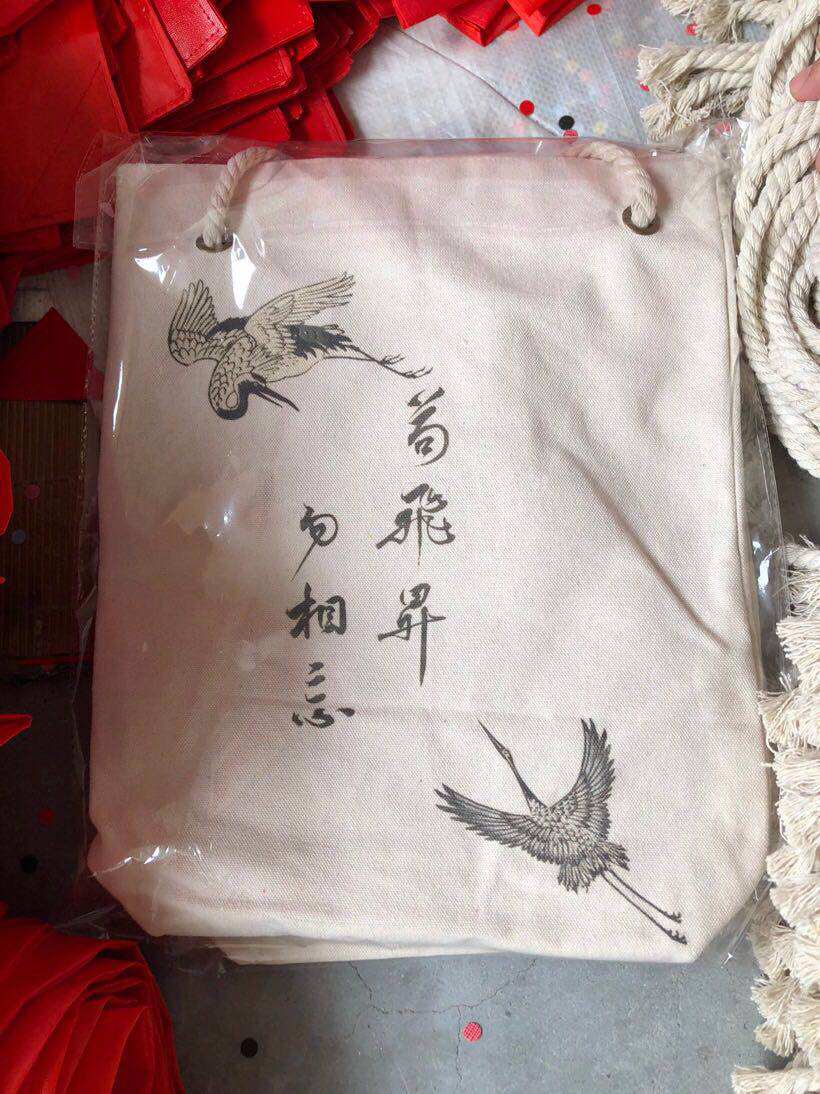 苟飛昇
勿相忘